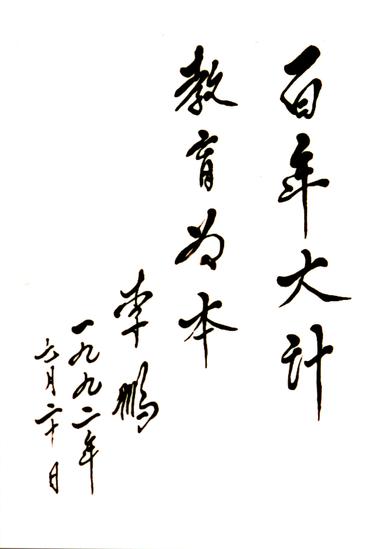 百年大计
教育为本
李鹏
一九九二年
六月二十日